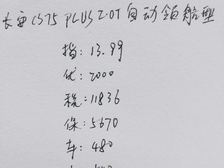 长安CS75 PLUS 2.0T 自动领航型
指：13.99
优：2000
税：11836
保：5670
车：480